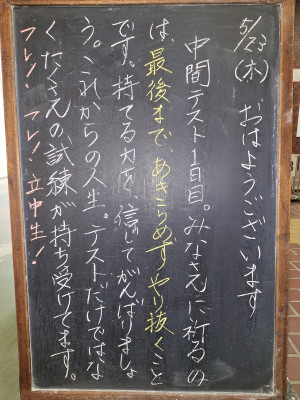 5/23(木) おはようございます
中間テスト1日目。みなさんに祈るの
は、最後まで、あきらめずやり抜くこと
です。持てる力を、信じてがんばりましょ
う。これからの人生。テストだけではな
く、たくさんの試練が持ち受けてます。
フレー! フレー! 立中生!